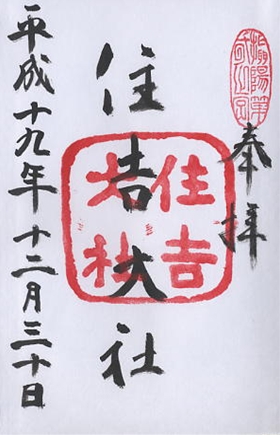 奉拝
住吉大社
住吉
大社
平成十九年十二月三十日